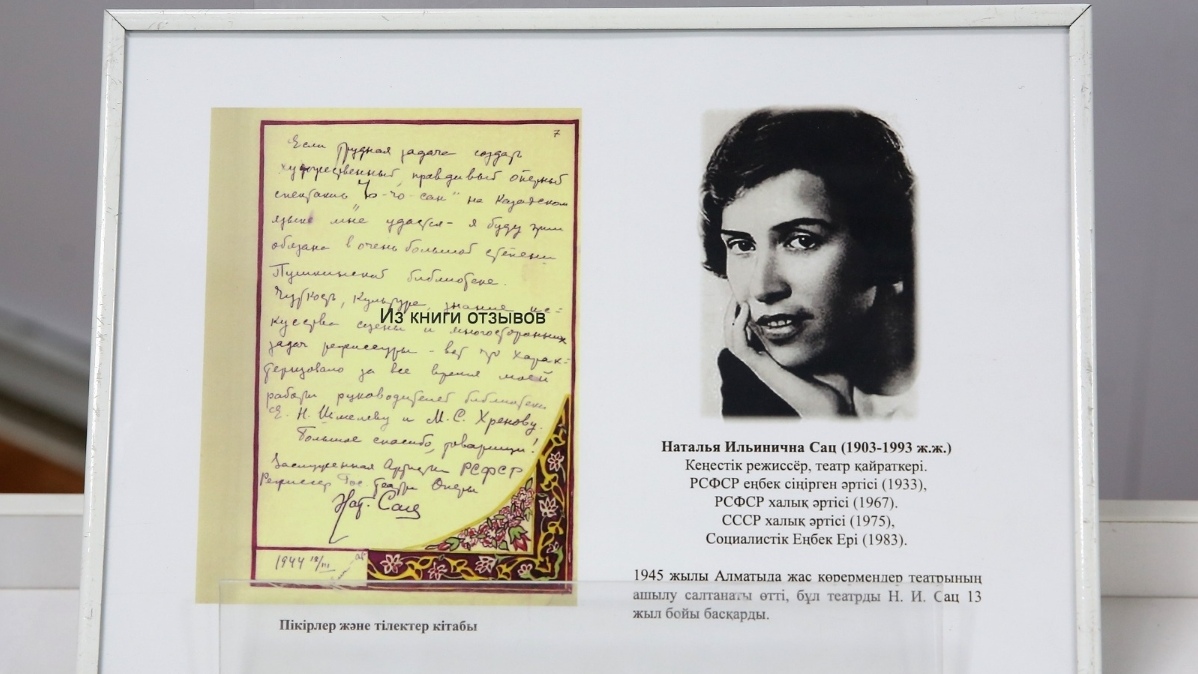 7
Если трудная задача создать
художественный, правдивый оперный
спектакль „Чо-чо-сан" на казахском
языке мне удастся - я буду этим
обязана в очень большой степени
Пушкинской библиотеке.
Чуткость, культура, знание ис-
Из книги отзывов
кусства сцены и многосторонних
задач режиссуры - всё это харак-
теризовало за все время моей
работы руководителей библиотеки
Е. Н. Шмелеву и М. С. Хренову.
Большое спасибо, товарищи!
Заслуженная Артистка РСФСР
Режиссер Гос. Театра Оперы
Нат. Сац
1944
Пікірлер және тілектер кітабы
Наталья Ильинична Сац (1903-1993 ж.ж.)
Кеңестік режиссёр, театр қайраткері.
РСФСР еңбек сіңірген әртісі (1933),
РСФСР халық әртісі (1967).
СССР халық әртісі (1975),
Социалистік Еңбек Ері (1983).
1945 жылы Алматыда жас көрермендер театрының
ашылу салтанаты өтті, бұл театрды Н. И. Сац 13
жыл бойы басқарды.